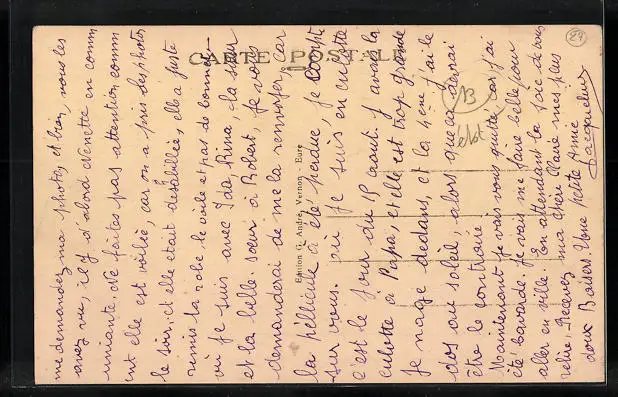 me demandez ma photos et bien, vous les
avez vu, il y d'abord Nenette en comm
uniante. Ne faites pas attention comm
ent elle est voilié car on a pris des photos
le soir, et elle était deshabillée, elle a juste
remis la robe le voile et pas de bonnet
où je suis avec Ida, Rina, la sœur
et la belle sœur à Robert, je vous
demanderai de me la renvoyer, car
la péllicule a été perdue, je compte
sur vous. où je suis en culotte
c'est le jour du 15 aout. J'avais la
culotte à Papa, et elle est trop grande
je nage dedans, et la 4eme j'ai le
dos au soleil, alors que ça devrai
être le contraire
Maintenant je vais vous quitter car j'ai
été bavarde je vais me faire belle pour
aller en ville. En attendant la joie de vous
relire, Recevez ma chère Claire mes plus
doux Baisers. Une petite Amie
Jacqueline
CARTE POSTALE
Edition G. André, Vernon - Eure
29
AB